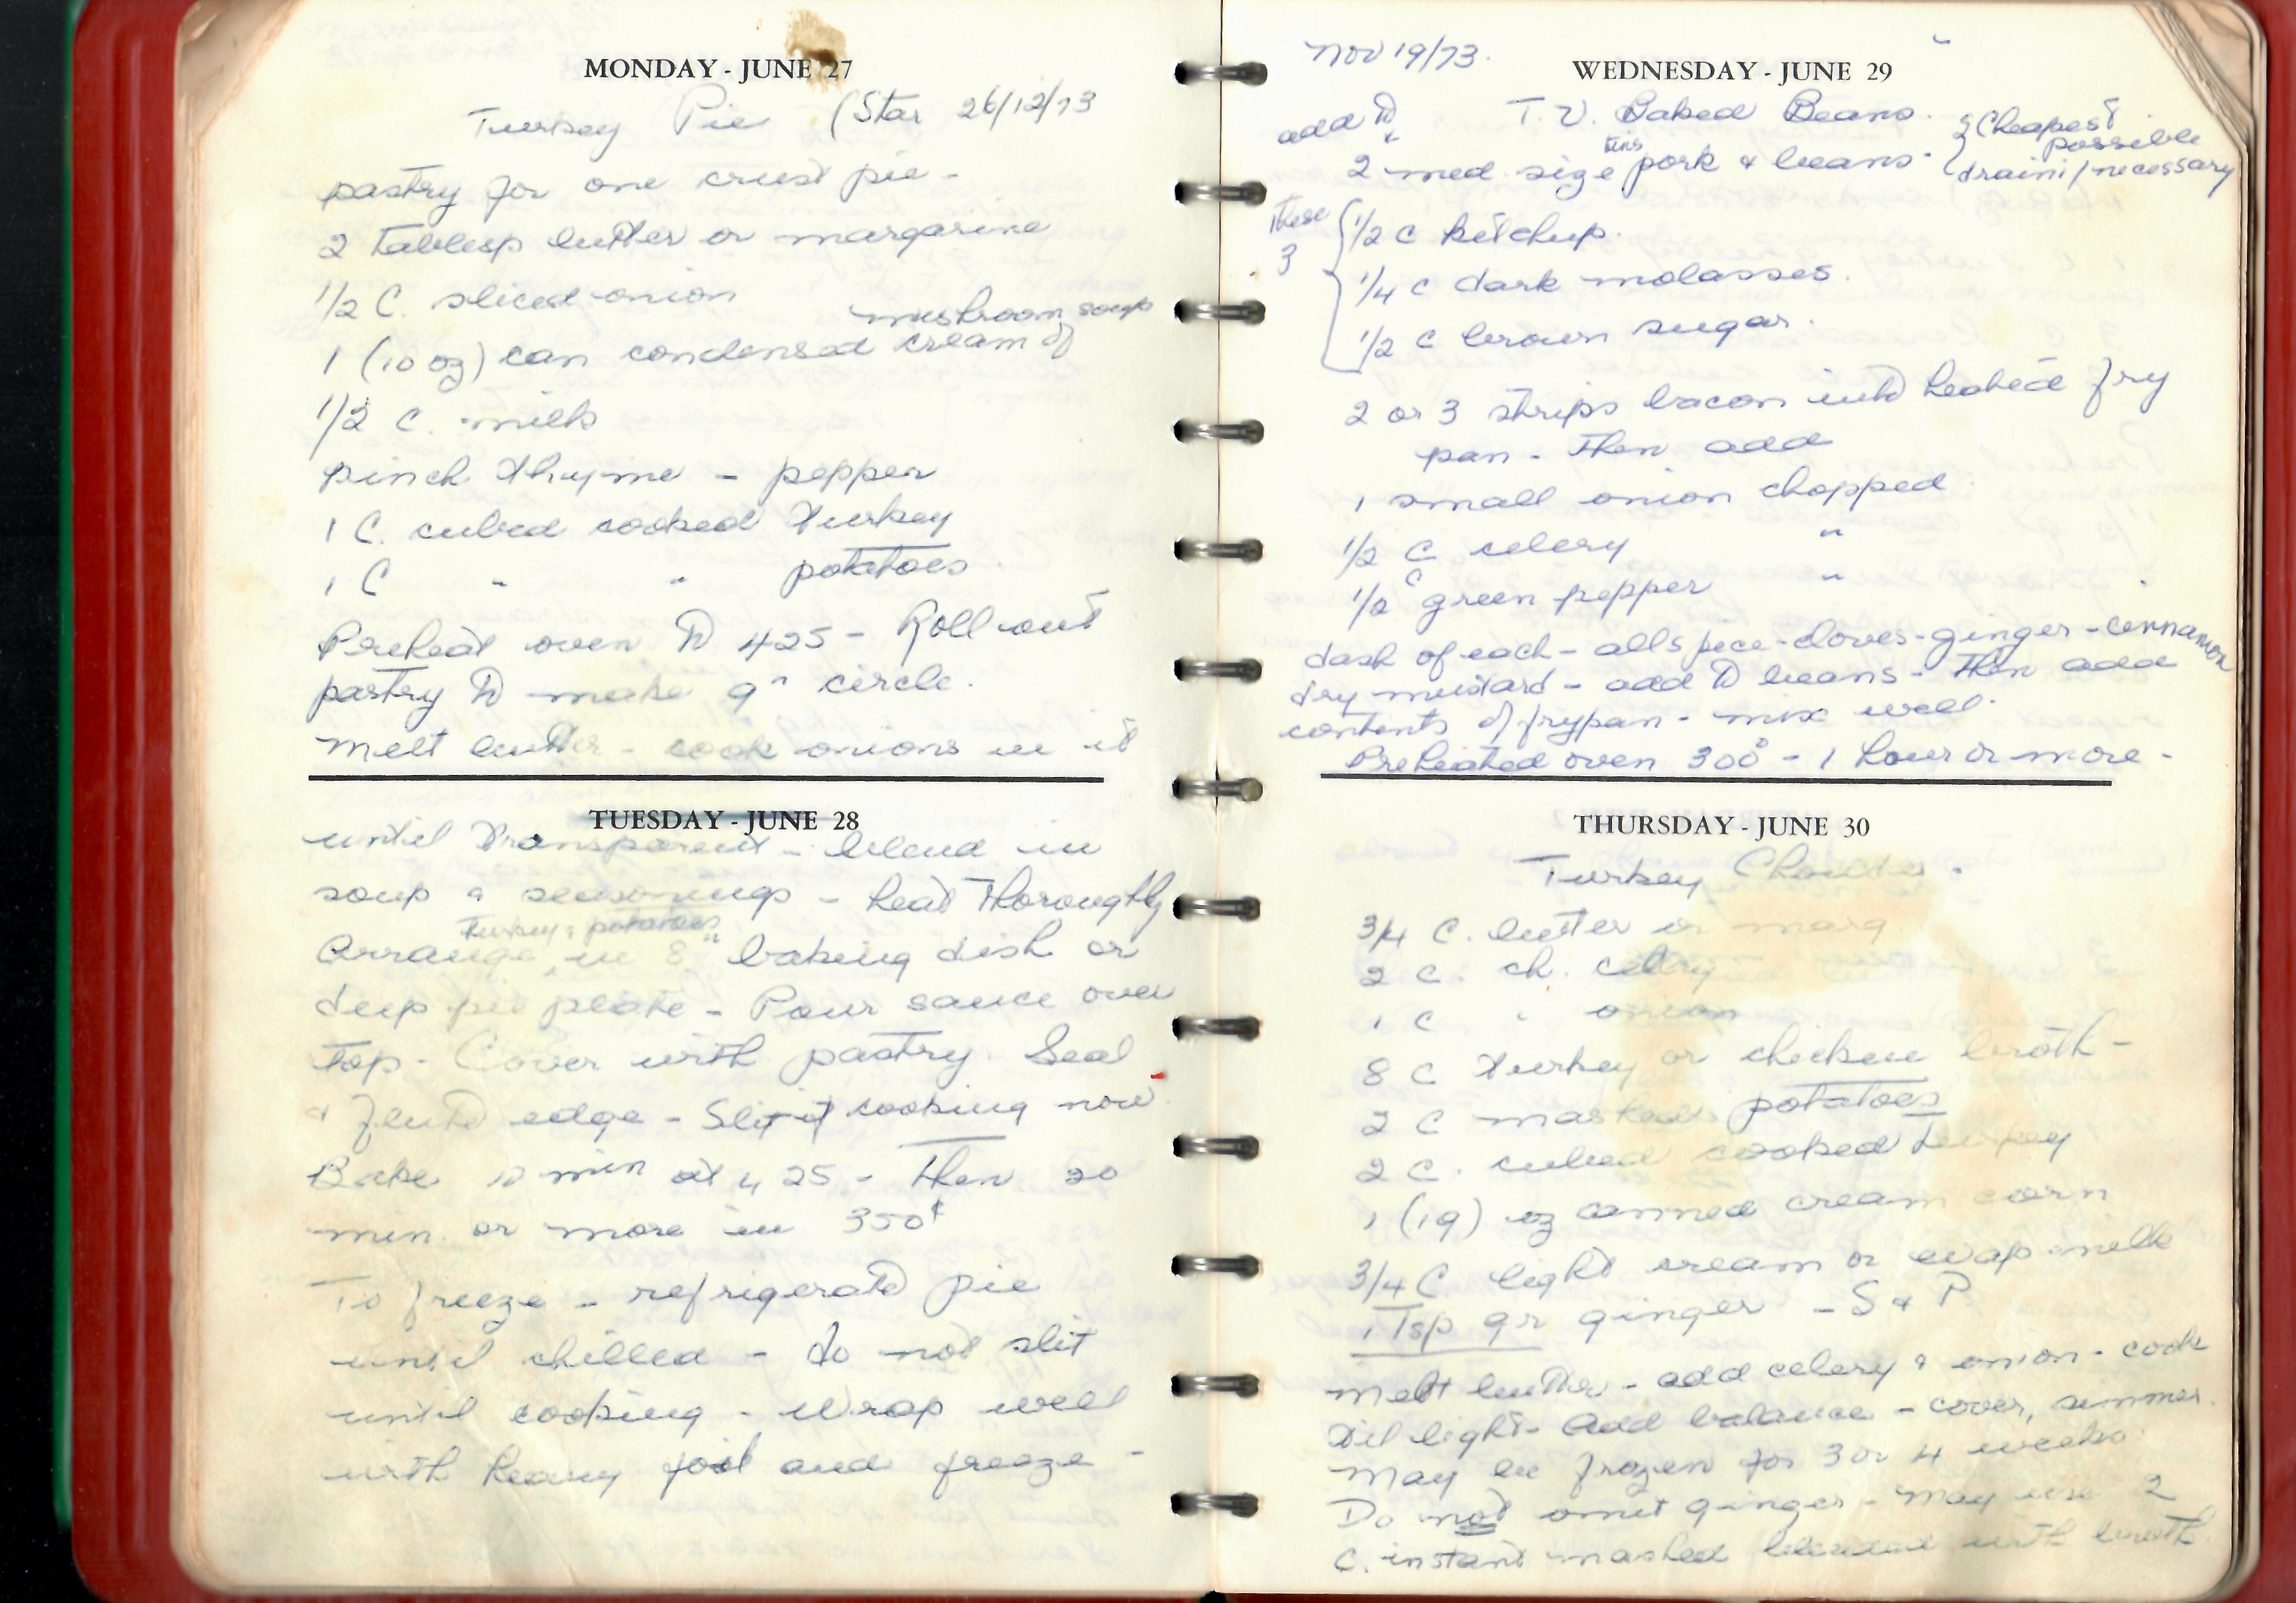 MONDAY - JUNE 27
Turkey Pie (Star 26/12/73
pastry for one crust pie -
2 Tablesp butter or margarine
1/2 C. sliced onion
mushroom soup
1 (10 oz) can condensed cream of
1/2 C. milk
pinch thyme - pepper
1 C. cubed cooked Turkey
1 C " " potatoes
Preheat oven to 425 - Roll out
pastry to make 9" circle.
Melt butter - cook onions in it
TUESDAY - JUNE 28
until transparent - blend in
soup & seasonings - heat thoroughly
Turkey & potatoes
Arrange in 8" baking dish or
deep pie plate - Pour sauce over
top - Cover with pastry. Seal
& flute edge - Slit if cooking now
Bake 10 min at 425 - Then 20
min. or more in 350°
To freeze - refrigerate pie
until chilled - do not slit
until cooking - wrap well
with heavy foil and freeze -
Nov 19/73.
WEDNESDAY - JUNE 29
add to T.V. Baked Beans. Cheapest
possible
2 med. size tins pork & beans - drain / necessary
These 3
1/2 c ketchup.
1/4 c dark molasses.
1/2 c brown sugar.
2 or 3 strips bacon into heated fry
pan - Then add
1 small onion chopped
1/2 C celery "
1/2 C green pepper "
dash of each - allspice - cloves - ginger - cinnamon
dry mustard - add to beans - Then add
contents of frypan - mix well.
Preheated oven 300° - 1 hour or more -
THURSDAY - JUNE 30
Turkey Chowder.
3/4 C. butter or marg
2 C. ch. celery
1 C " onion
8 C Turkey or chicken broth -
2 C mashed potatoes
2 C. cubed cooked turkey
1 (19) oz canned cream corn
3/4 C. light cream or evap milk
1 Tsp gr ginger - S & P.
Melt butter - add celery & onion - cook
til light - Add balance - cover, simmer.
May be frozen for 3 or 4 weeks
Do not omit ginger - may use 2
C. instant mashed blended with broth